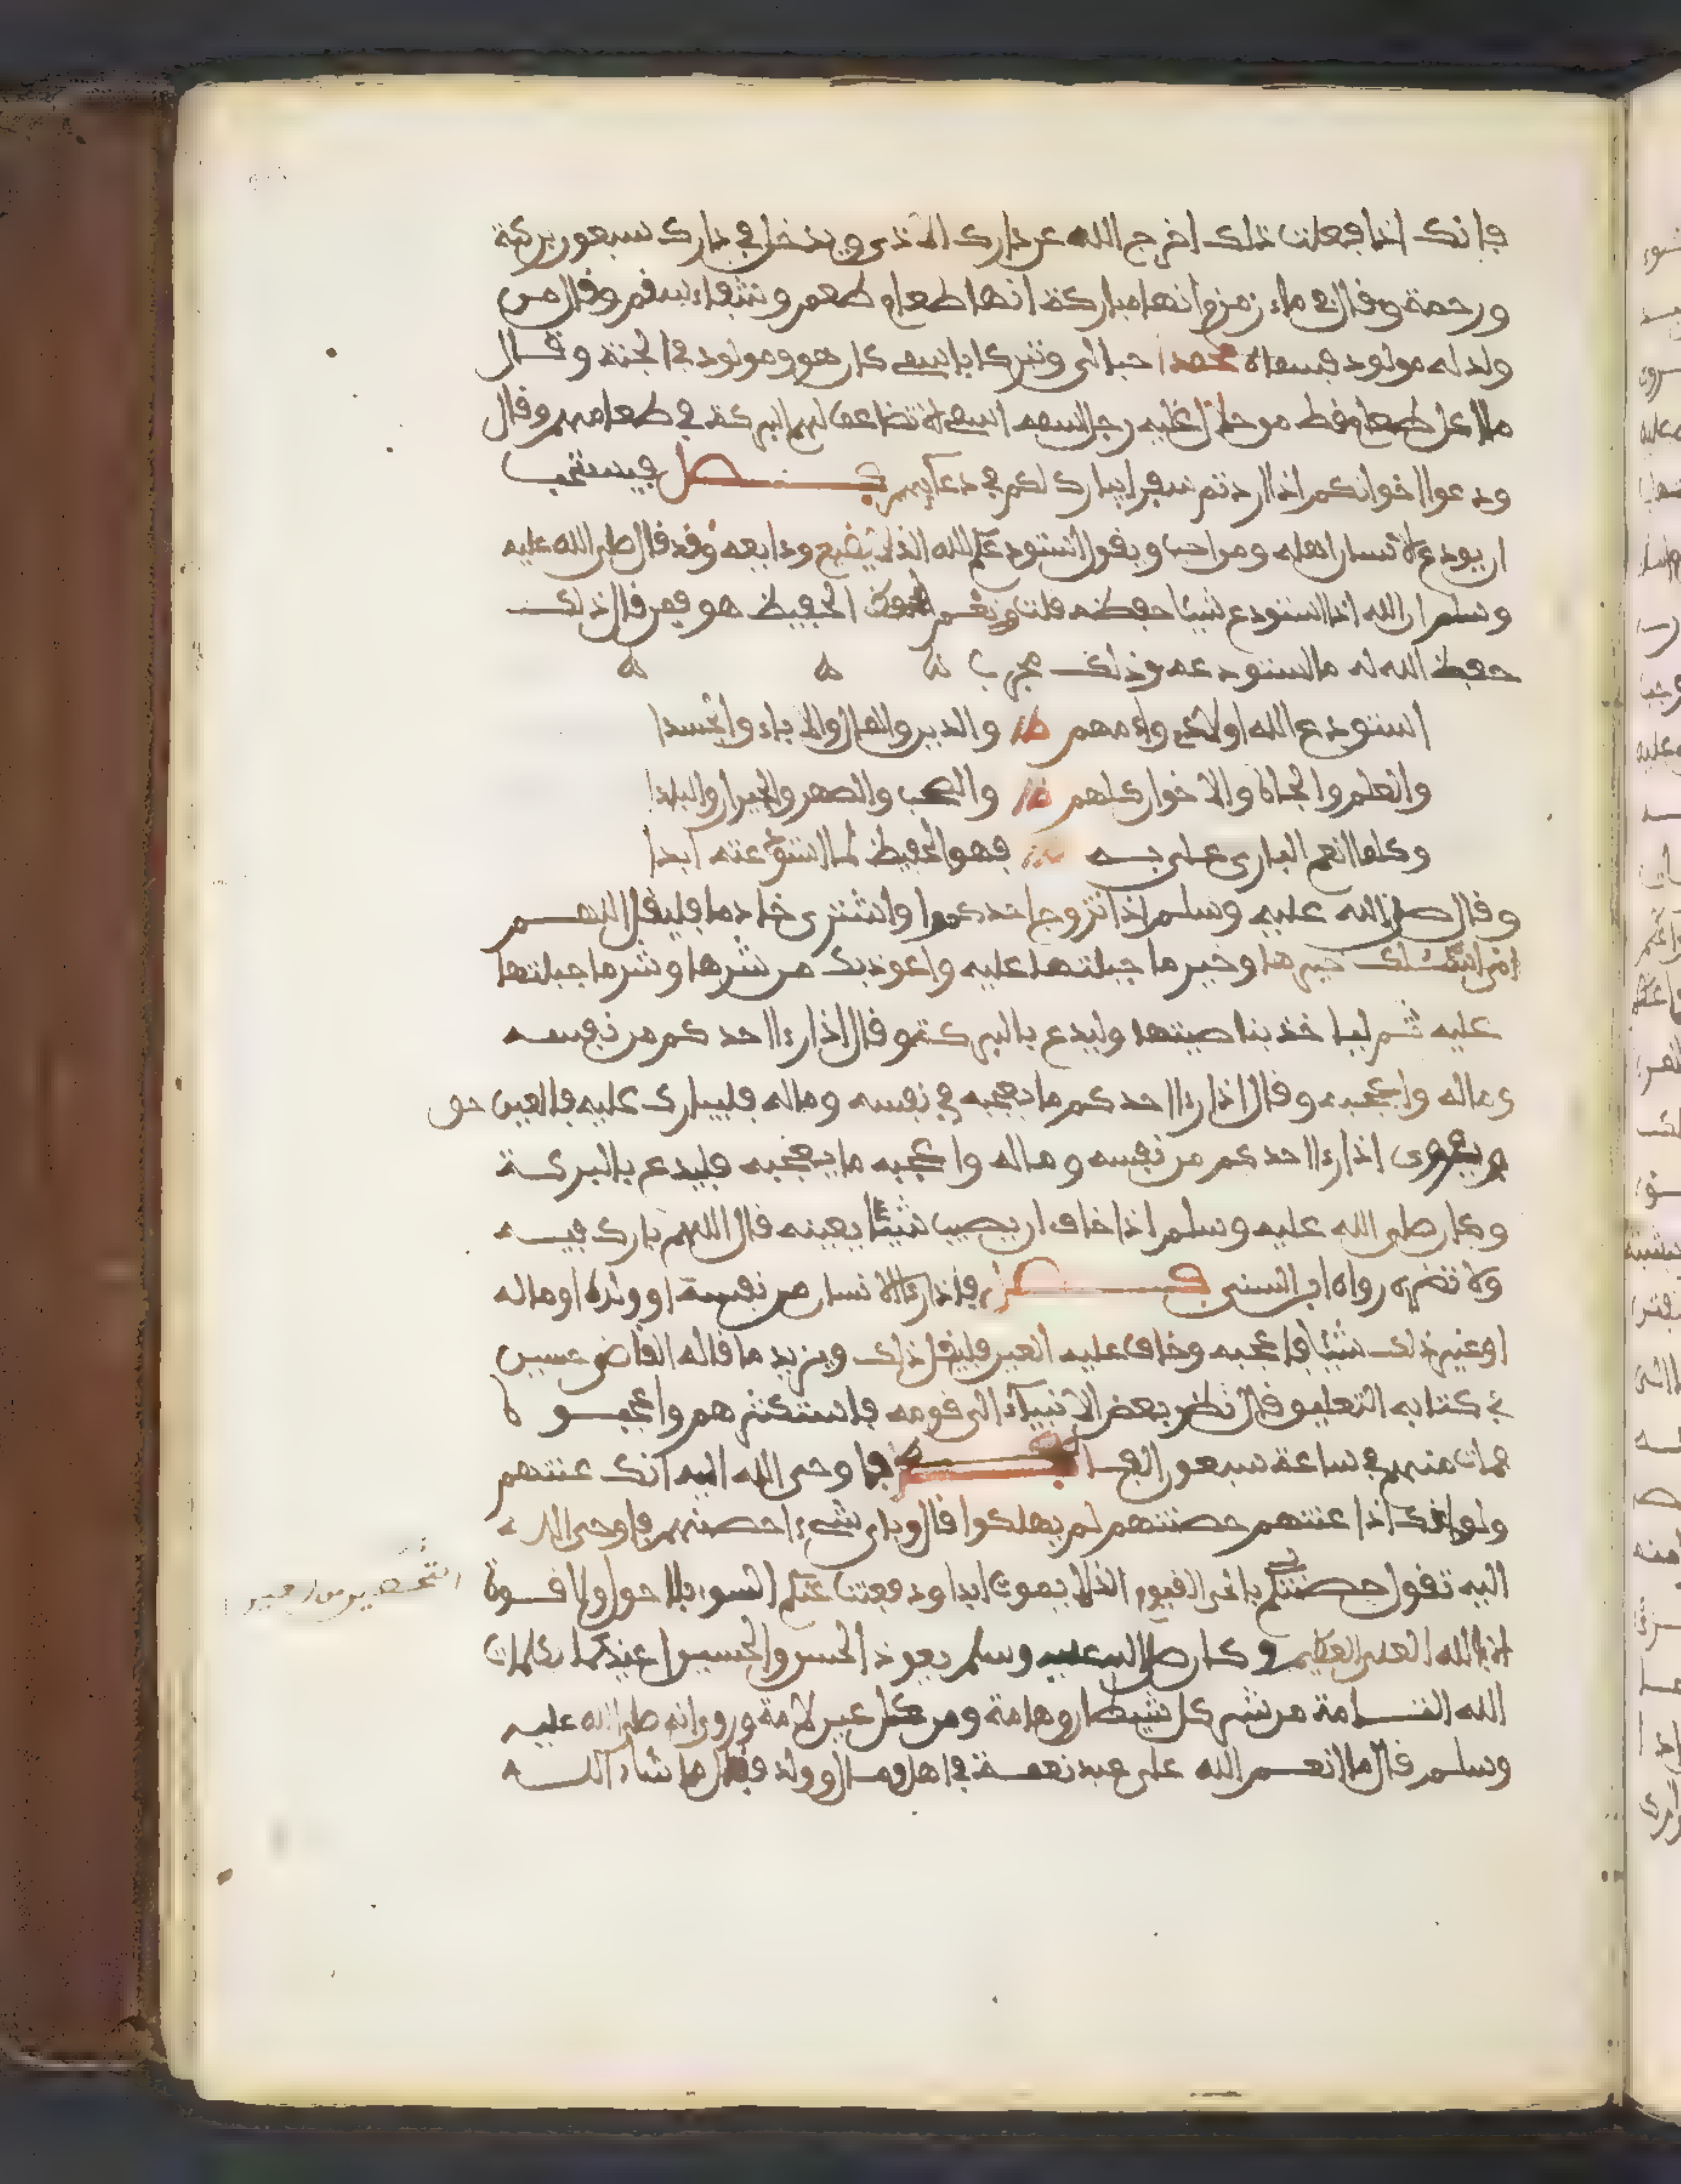 فانك اذا فعلت ذلك اخرج الله عن دارك الاذى ويدخل في دارك سبعون بركة
ورحمة وقال في ماء زمزم انها مباركة انها طعام طعم وشفاء سقم وقال من
ولد له مولود فسماه محمدا حبا لي وتبركا باسمي كان هو ومولوده في الجنة وقال
ما اكل طعام قط من حلال عليه رجل اسمه اسمي الا تضاعف لهم البركة في طعامهم وقال
ودعوا اخوانكم اذا اردتم سفرا يبارك لكم في دعآيهم فصل فيستحب
ان يودع الانسان اهله ومن احب ويقول استودعكم الله الذي لا يضيع ودايعه وقد قال صلى الله عليه
وسلم ان الله اذا استودع شيئا حفظه قلت ونعم الحفيظ هو فمن قال ذلك
حفظ الله له ما استودعه وذلك مجرب
استودع الله اولادي وامهم والدين والمال والاباء والجسدا
والعلم والجاه والاخوان كلهم والصحب والصهر والجيران والبلدا
وكلما انعم البارى على به فهو الحفيظ لما استودعته ابدا
وقال صلى الله عليه وسلم اذا تزوج احدكم او اشترى خادما فليقل اللهم
انى اسئلك خيرها وخير ما جبلتها عليه واعوذ بك من شرها وشر ما جبلتها
عليه ثم لياخذ بناصيتها وليدع بالبركة وقال اذا رءا احدكم من نفسه
وماله واعجبه وقال اذا رءا احدكم ما يعجبه في نفسه وماله فليبارك عليه فالعين حق
ويروى اذا رءا احدكم من نفسه وماله واعجبه ما يعجبه فليدع بالبركة
وكان صلى الله عليه وسلم اذا خاف ان يصيب شيئا بعينه قال اللهم بارك فيه
ولا تضره رواه ابن السني فصل فاذا رءا الانسان من نفسه او ولده او ماله
او غير ذلك شيئا فاعجبه وخاف عليه العين فليقل ذلك ويزيد ما قاله القاضي حسين
في كتابه التعليق قال نظر بعض الانبياء الى قومه فاستكثرهم واعجبوه
فمات منهم في ساعة سبعون الفا فاوحى الله اليه انك عنتهم
ولو انك اذا عنتهم حصنتهم لم يهلكوا قال وباى شيء احصنهم فاوحى الله
اليه تقول حصنتكم بالحى القيوم الذى لا يموت ابدا ودفعت عنكم السوء بلا حول ولا قوة
الا بالله العلى العظيم وكان صلى الله عليه وسلم يعوذ الحسن والحسين اعيذكما بكلمات
الله التامة من شر كل شيطان وهامة ومن كل عين لامة وروى انه صلى الله عليه
وسلم قال ما انعم الله على عبد نعمة في اهل ومال وولد فقال ما شاء الله
التحصين من العين